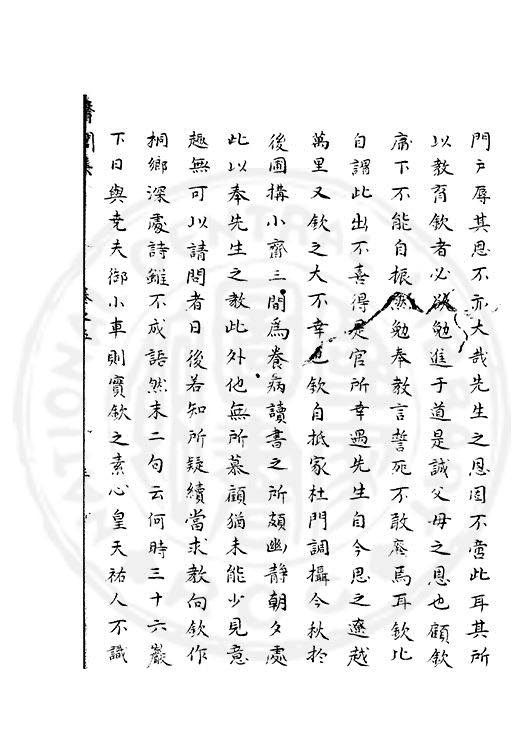 門户辱其恩不亦大哉先生之恩固不啻此耳其所
以教育欽者必欲勉進于道是誠父母之恩也顧欽
庸下不能自振然勉奉教言誓死不敢廢焉耳欽比
自謂此出不喜得是官所幸遇先生自今思之遼越
萬里又欽之大不幸也欽自抵家杜門調攝今秋於
後圃搆小齋三間爲養病讀書之所頗幽靜朝夕處
此以奉先生之教此外他無所慕顧猶未能少見意
趣無可以請問者日後若知所疑續當求教向欽作
桐鄉深處詩雖不成語然末二句云何時三十六巖
下日與堯夫御小車則實欽之素心皇天祐人不識